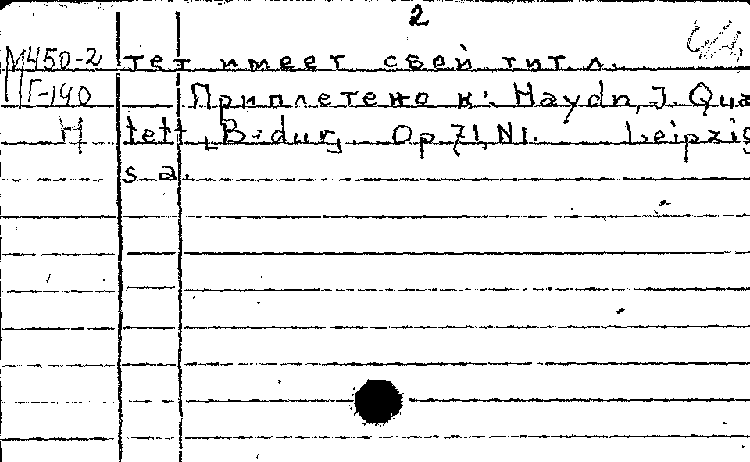 2
М450-2 тет имеет свой тит. л.
Г-140 Приплетено к: Haydn, J. Qua
Н tett [B-dur], Op 71, N1. Leipzig
s a.